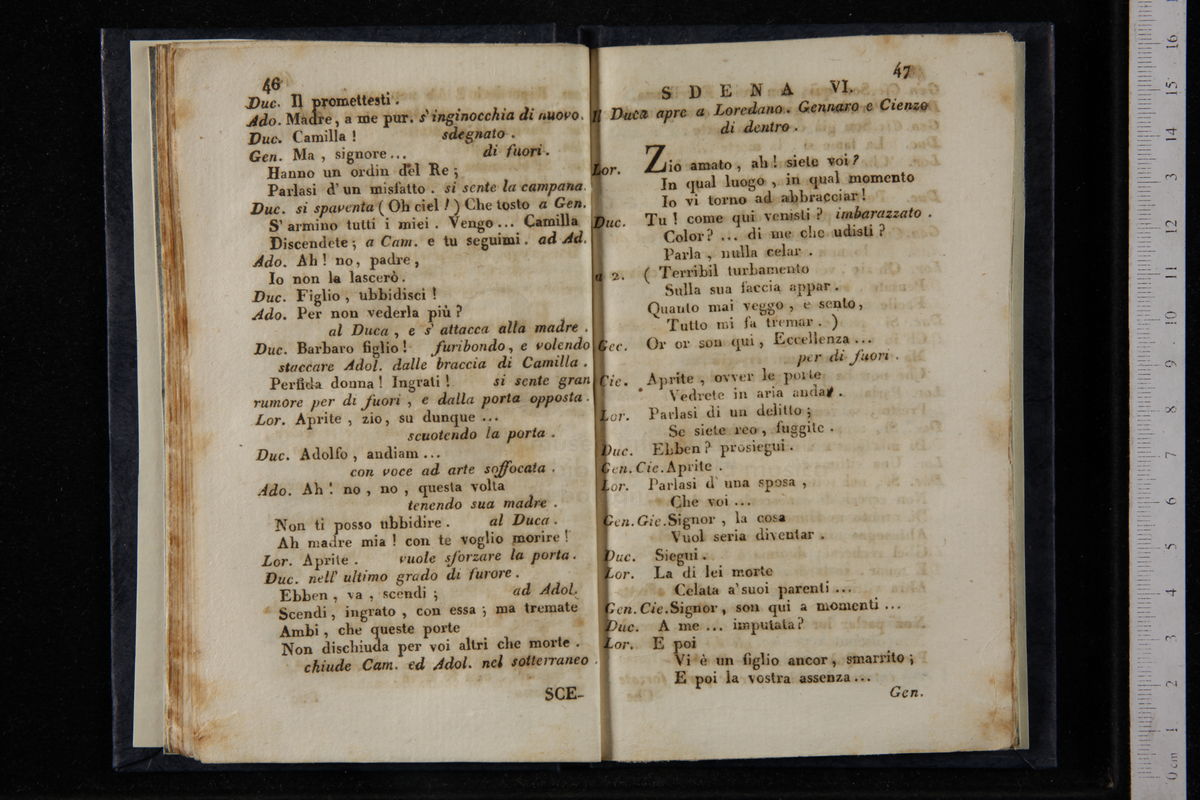 46
Duc. Il promettesti.
Ado. Madre, a me pur. s'inginocchia di nuovo.
Duc. Camilla! sdegnato.
Gen. Ma, signore... di fuori.
Hanno un ordin del Re;
Parlasi d'un misfatto. si sente la campana.
Duc. si spaventa (Oh ciel!) Che tosto a Gen.
S'armino tutti i miei. Vengo... Camilla
Discendete; a Cam. e tu seguimi. ad Ad.
Ado. Ah! no, padre,
Io non la lascerò.
Duc. Figlio, ubbidisci!
Ado. Per non vederla più?
al Duca, e s'attacca alla madre.
Duc. Barbaro figlio! furibondo, e volendo
staccare Adol. dalle braccia di Camilla.
Perfida donna! Ingrati! si sente gran
rumore per di fuori, e dalla porta opposta.
Lor. Aprite, zio, su dunque...
scuotendo la porta.
Duc. Adolfo, andiam...
con voce ad arte soffocata.
Ado. Ah! no, no, questa volta
tenendo sua madre.
Non ti posso ubbidire. al Duca.
Ah madre mia! con te voglio morire!
Lor. Aprite. vuole sforzare la porta.
Duc. nell' ultimo grado di furore.
Ebben, va, scendi; ad Adol.
Scendi, ingrato, con essa; ma tremate
Ambi, che queste porte
Non dischiuda per voi altri che morte.
chiude Cam. ed Adol. nel sotterraneo.
SCE-
47
SDENA VI.
Il Duca apre a Loredano. Gennaro e Cienzo
di dentro.
Lor. Zio amato, ah! siete voi?
In qual luogo, in qual momento
Io vi torno ad abbracciar!
Duc. Tu! come qui venisti? imbarazzato.
Color? ... di me che udisti?
Parla, nulla celar.
a 2. (Terribil turbamento
Sulla sua faccia appar.
Quanto mai veggo, e sento,
Tutto mi fa tremar.)
Gec. Or or son qui, Eccellenza...
per di fuori.
Cie. Aprite, ovver le porte
Vedrete in aria andar.
Lor. Parlasi di un delitto;
Se siete reo, fuggite.
Duc. Ebben? prosiegui.
Gen. Cie. Aprite.
Lor. Parlasi d'una sposa,
Che voi...
Gen. Gie. Signor, la cosa
Vuol seria diventar.
Duc. Siegui.
Lor. La di lei morte
Celata a'suoi parenti...
Gen. Cie. Signor, son qui a momenti...
Duc. A me... imputata?
Lor. E poi
Vi è un figlio ancor, smarrito;
E poi la vostra assenza...
Gen.